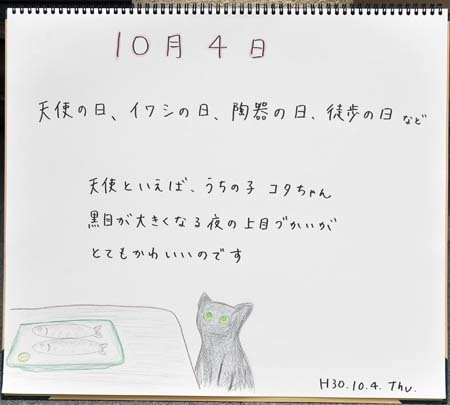 10月4日
天使の日、イワシの日、陶器の日、徒歩の日 など
天使といえば、うちの子 コタちゃん
黒目が大きくなる夜の上目づかいが
とてもかわいいのです
H30.10.4. Thu.